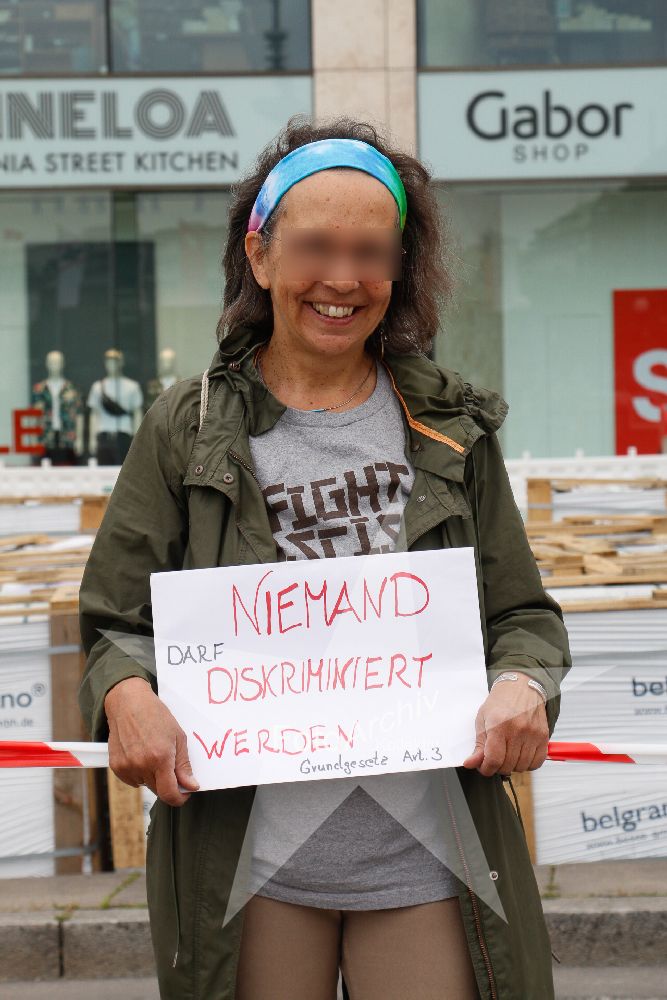 NELOA
NIA STREET KITCHEN
Gabor
SHOP
FIGHT
NIEMAND
DARF
DISKRIMINIERT
WERDEN
Grundgesetz Art. 3
belgrano